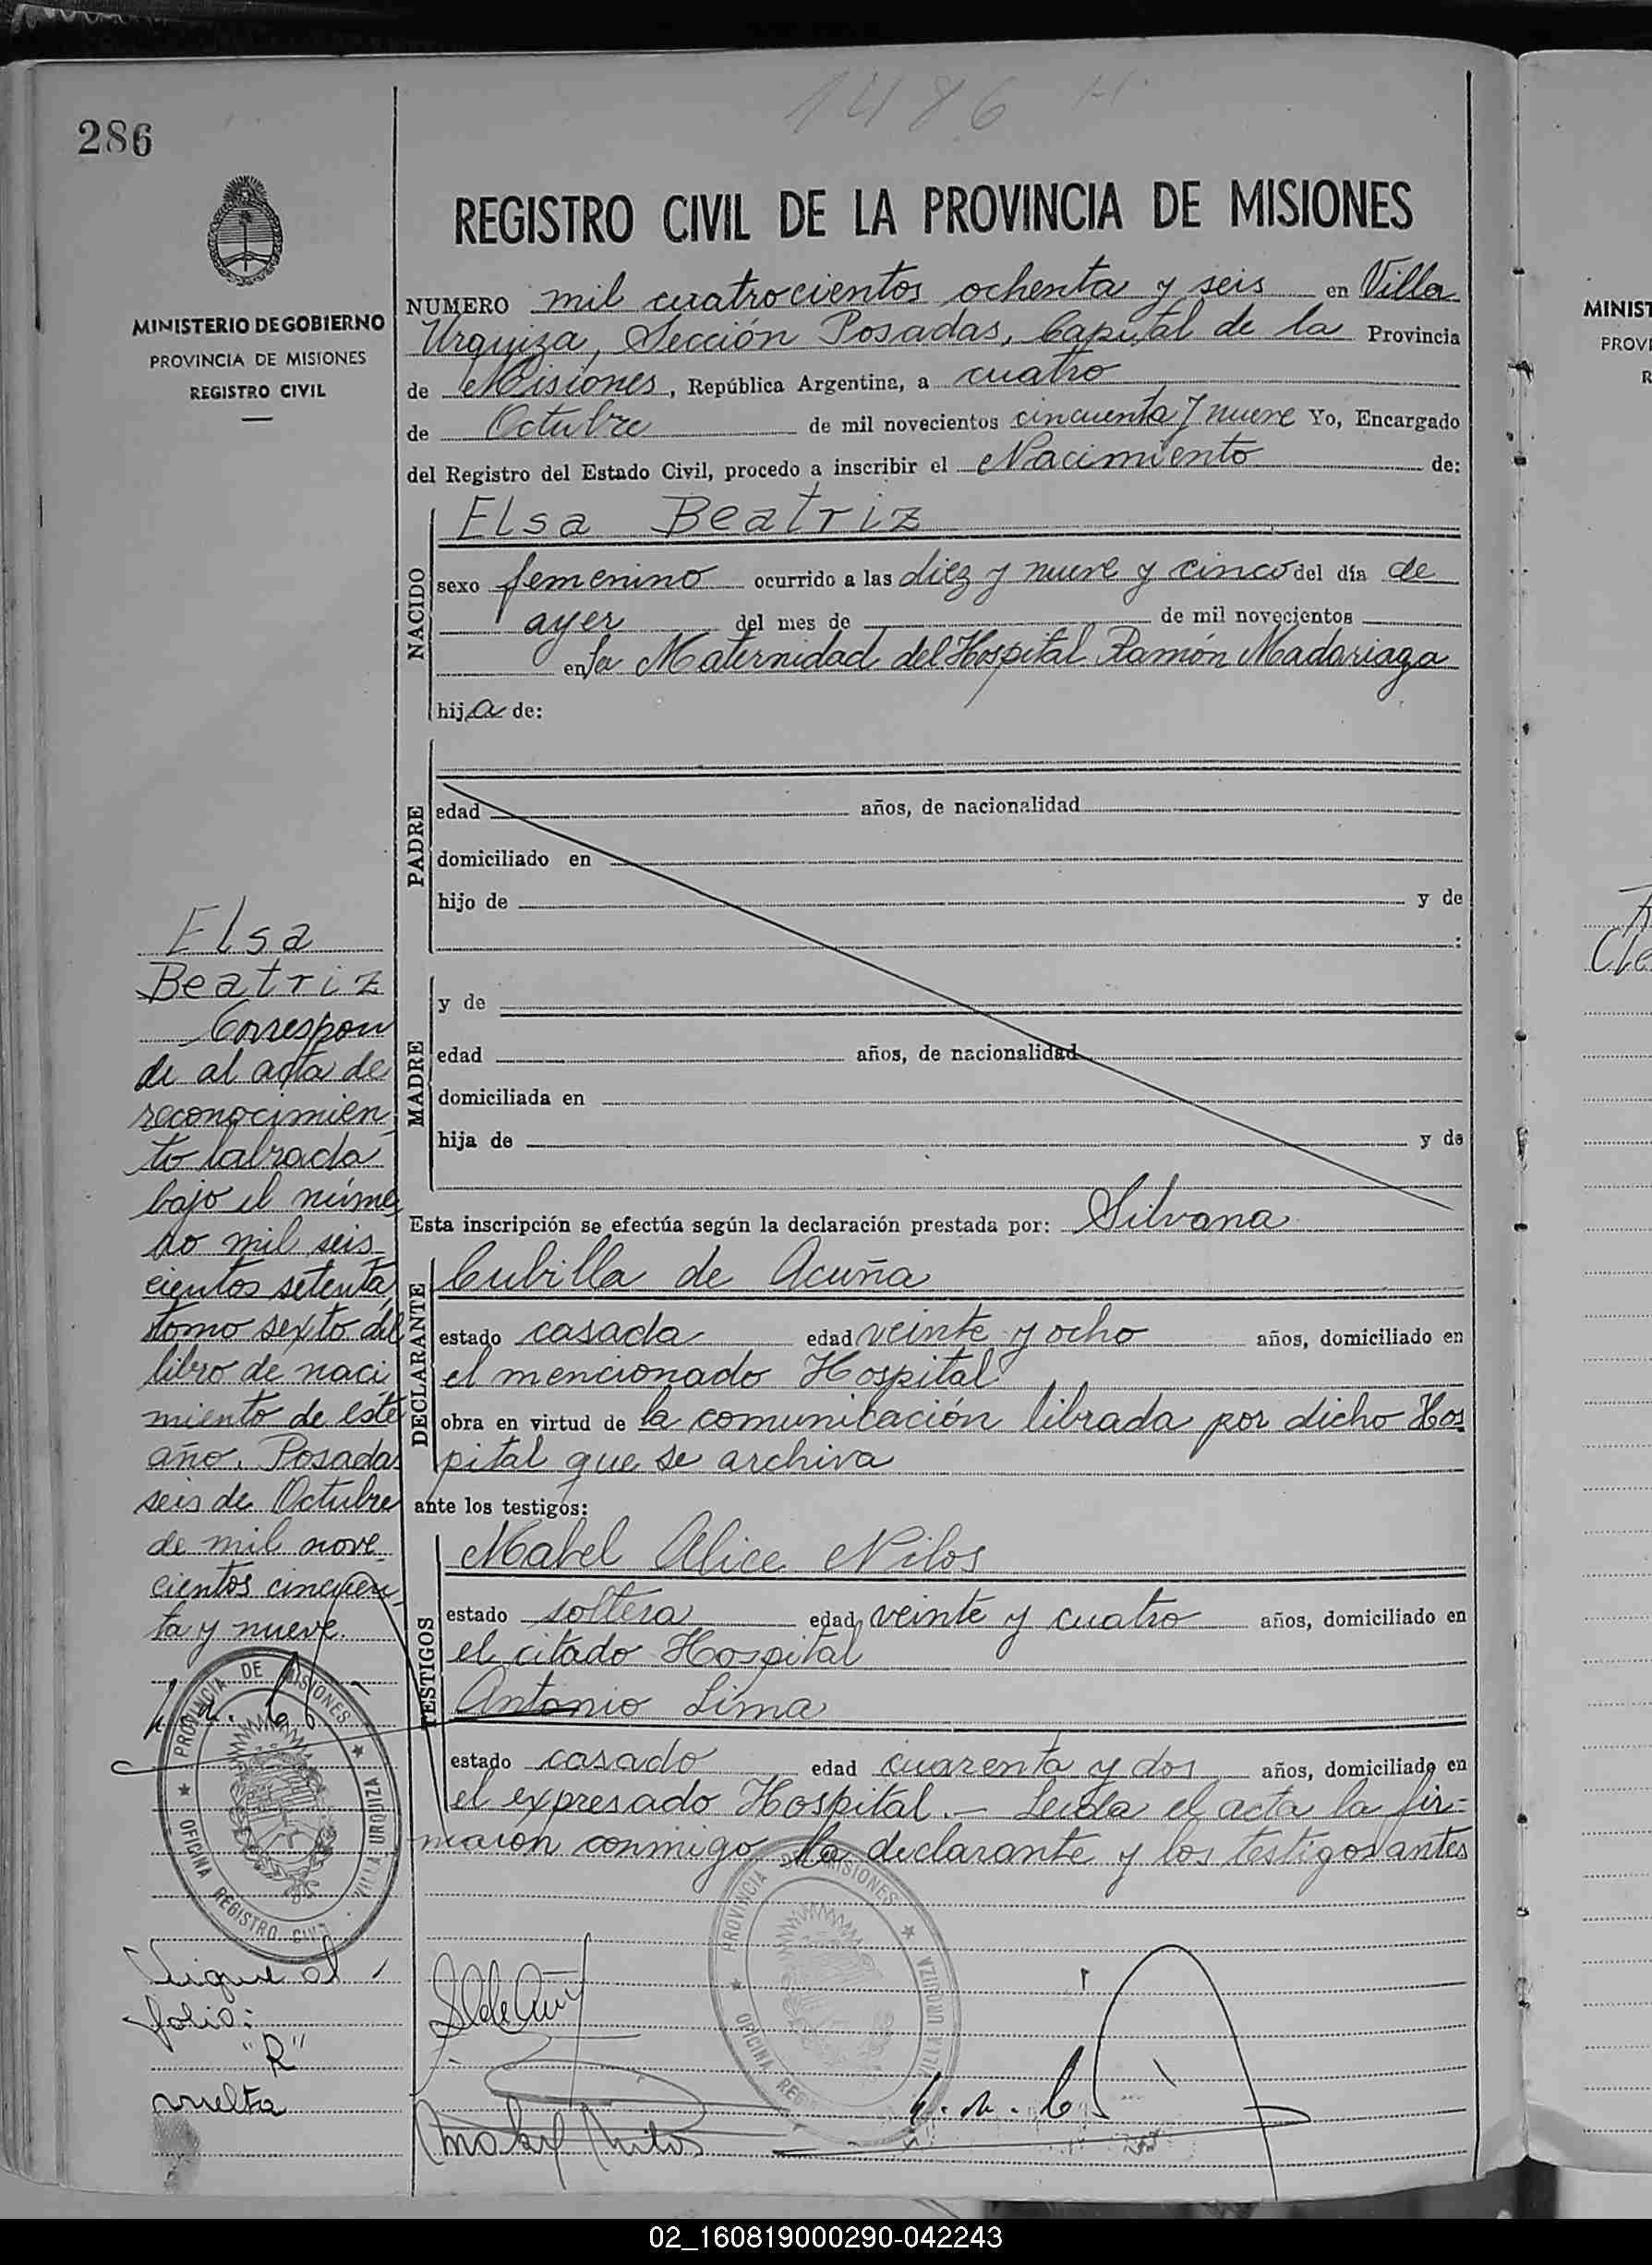 1486 H.
286
MINISTERIO DE GOBIERNO
PROVINCIA DE MISIONES
REGISTRO CIVIL
REGISTRO CIVIL DE LA PROVINCIA DE MISIONES
NUMERO mil cuatrocientos ochenta y seis en Villa
Urquiza, Sección Posadas, Capital de la Provincia
de Misiones, República Argentina, a cuatro
de Octubre de mil novecientos cincuenta y nueve Yo, Encargado
del Registro del Estado Civil, procedo a inscribir el Nacimiento de:
NACIDO
Elsa Beatriz
sexo femenino ocurrido a las diez y nueve y cinco del día de
ayer del mes de de mil novecientos
en la Maternidad del Hospital Ramón Madariaga
hija de:
PADRE
edad años, de nacionalidad
domiciliado en
hijo de y de
:
MADRE
y de
edad años, de nacionalidad
domiciliada en
hija de y de
Esta inscripción se efectúa según la declaración prestada por: Silvana
DECLARANTE
Cubilla de Acuña
estado casada edad veinte y ocho años, domiciliado en
el mencionado Hospital
obra en virtud de la comunicación librada por dicho Hos
pital que se archiva
ante los testigos:
TESTIGOS
Mabel Alice Nilos
estado soltera edad veinte y cuatro años, domiciliado en
el citado Hospital
Antonio Lima
estado casado edad cuarenta y dos años, domiciliado en
el expresado Hospital.- Leida el acta la fir=
maron conmigo la declarante y los testigos antes
Elsa
Beatriz
Correspon
de al acta de
reconocimien
to labrada
bajo el núme
ro mil seis
cientos setenta
tomo sexto del
libro de naci
miento de este
año. Posadas
seis de Octubre
de mil nove
cientos cincuen
ta y nueve.
PROVINCIA DE MISIONES
OFICINA REGISTRO CIVIL VILLA URQUIZA
Sigue al
folio:
"R"
vuelta
PROVINCIA DE MISIONES
OFICINA REG VILLA URQUIZA
Mabel Nilos
MINIST
PROVI
R
Cle
02_160819000290-042243